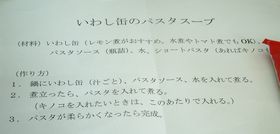 いわし缶のパスタスープ
(材料) いわし缶 (レモン煮がおすすめ。水煮やトマト煮でもOK)、
パスタソース (瓶詰)、水、ショートパスタ (あればキノコ
(作り方)
1. 鍋にいわし缶 (汁ごと)、パスタソース、水を入れて煮る。
2. 煮立ったら、パスタを入れて煮る。
(キノコを入れたいときは、このあたりで入れる。)
3. パスタが柔らかくなったら完成。